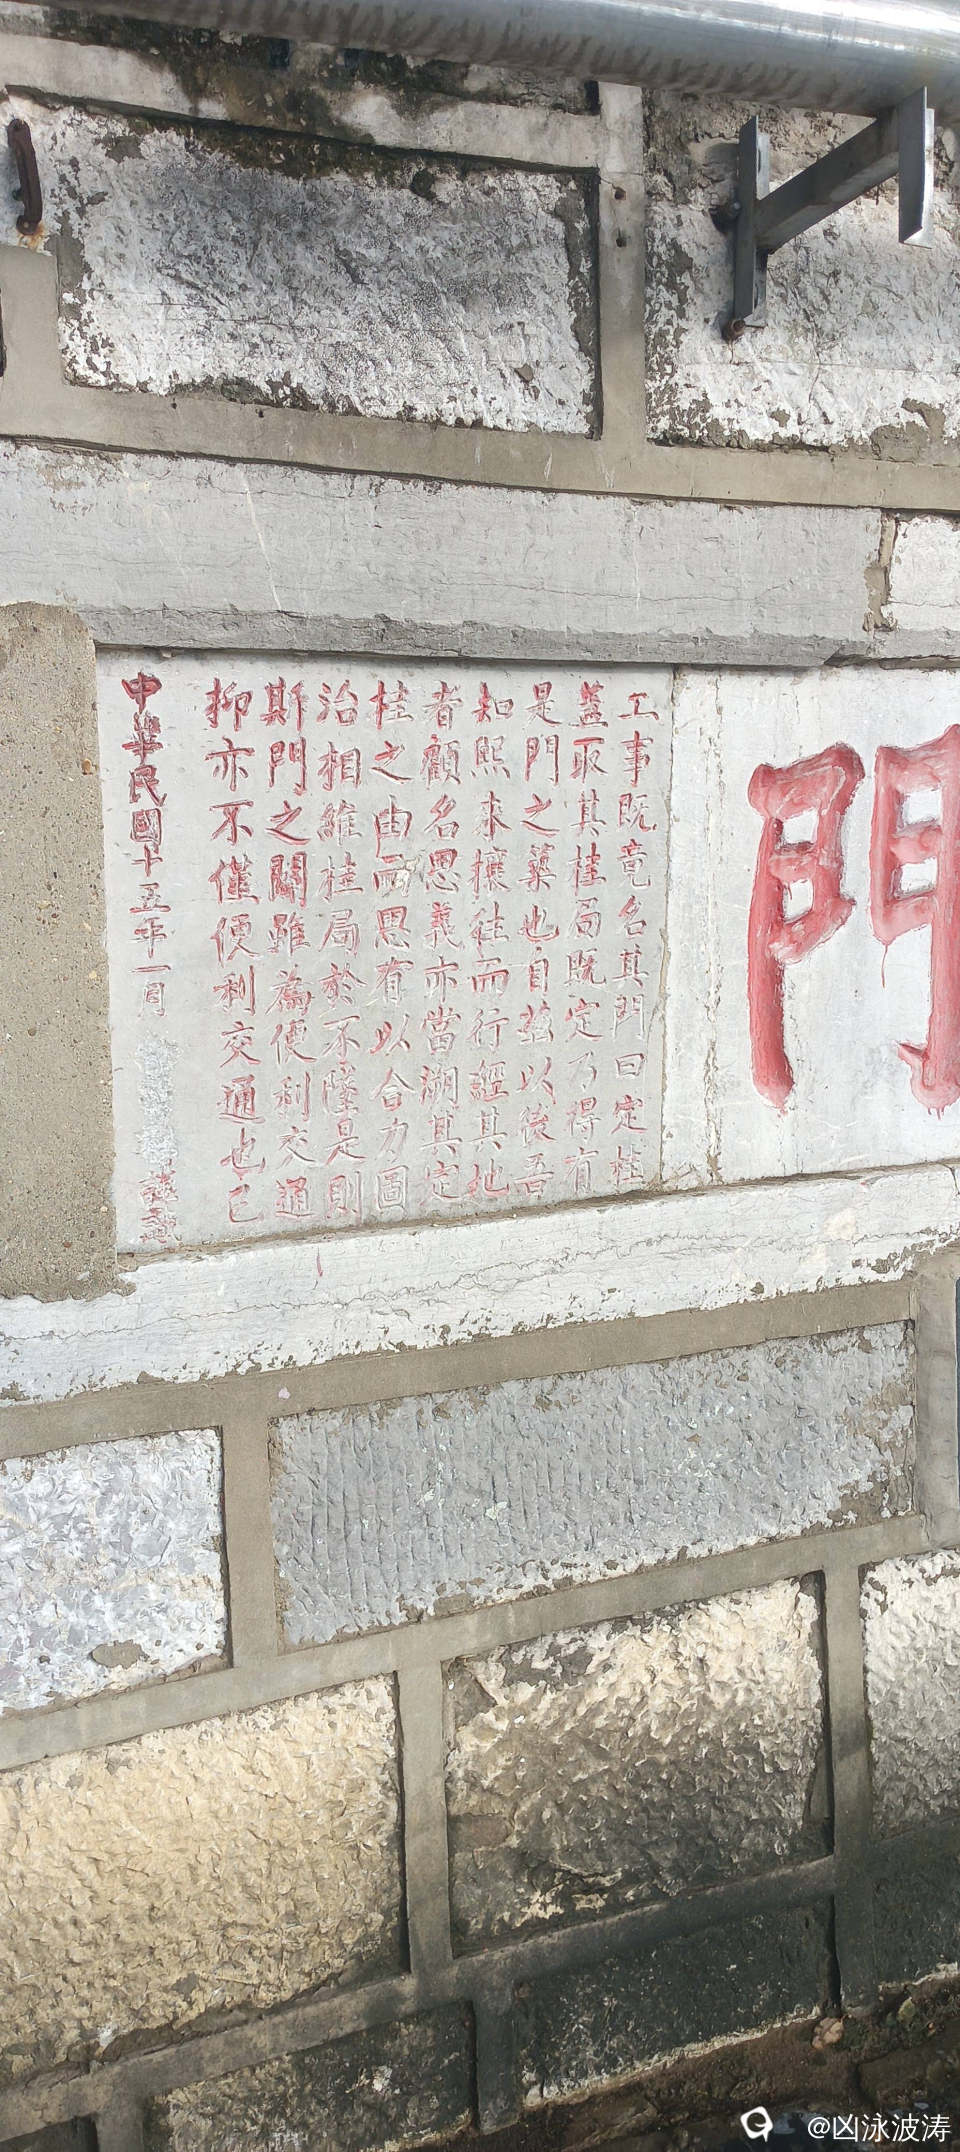 門
工事既竟名其門曰定桂
蓋取其桂局既定乃得有
是門之築也自茲以後吾
知熙來攘往而行經其地
者顧名思義亦當溯其定
桂之由而思有以合力圖
治相維桂局於不墜是則
斯門之關雖為便利交通
抑亦不僅便利交通也已
中華民國十五年一月
謹識
@凶泳波涛